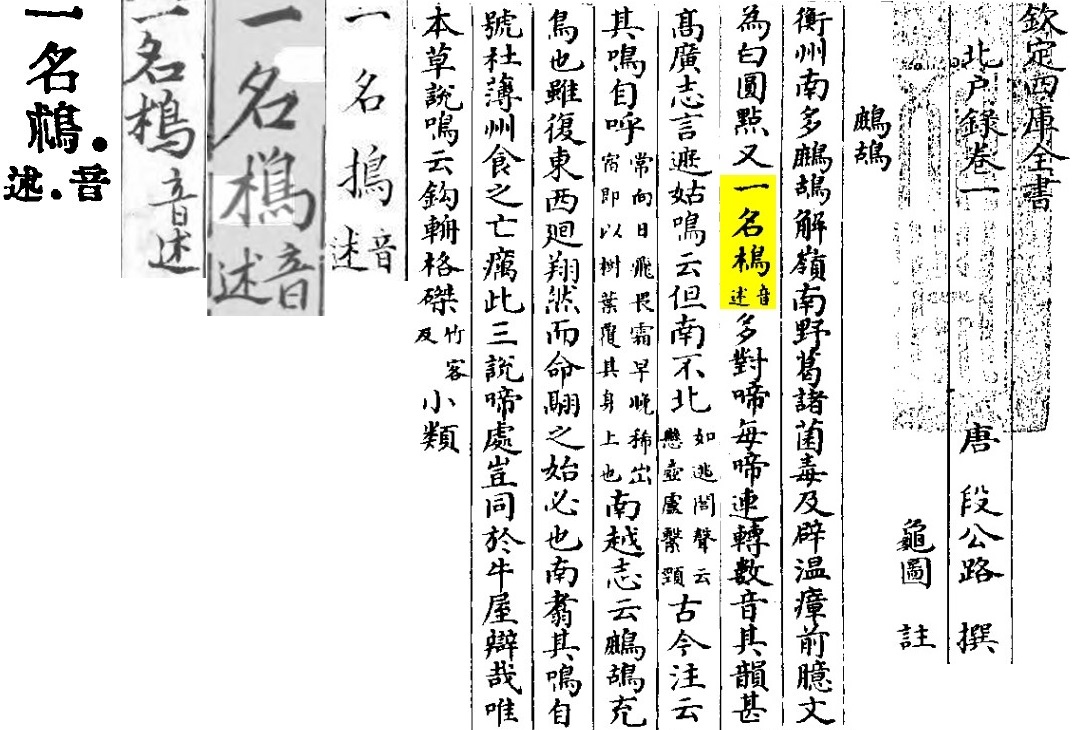 欽定四庫全書
北戶錄卷一
唐 段公路 撰
龜圖 註
鷓鴣
衡州南多鷓鴣解嶺南野葛諸菌毒及辟温瘴前臆文
為白圓點又一名樢音述多對啼每啼連轉數音其韻甚
髙廣志言遮姑鳴云但南不北如逃閭聲云懸壺盧繫頸古今注云
其鳴自呼常向日飛畏霜早晚稀出宿即以樹葉覆其身上也南越志云鷓鴣充
鳥也雖復東西廻翔然而命翮之始必也南翥其鳴自
號杜薄州食之亡癘此三說啼處豈同於牛屋辯哉唯
本草說鳴云鈎輈格磔竹客及小類
一名搗音述
一名樢音述
一名樢音述
一名樢.音.述